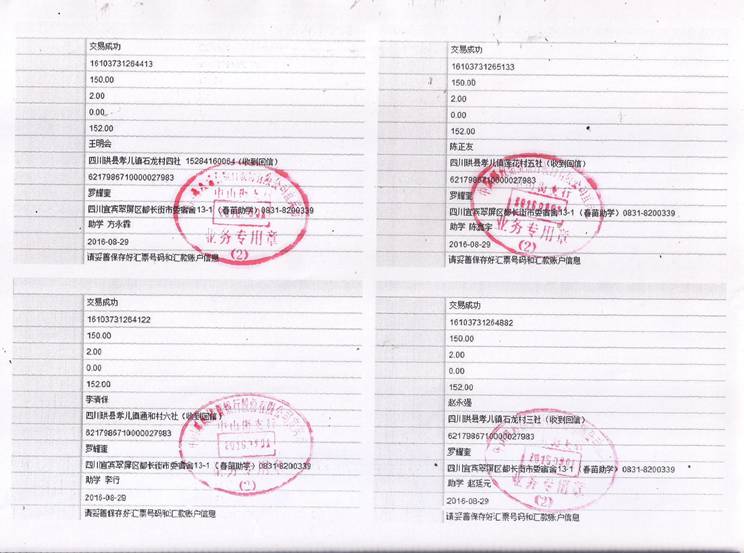 交易成功
16103731264413
150.00
2.00
0.00
152.00
王明会
四川珙县孝儿镇石龙村四社 15284160064（收到回信）
6217986710000027983
罗耀奎
四川宜宾翠屏区都长街市委宿舍13-1（春苗助学）0831-8200339
助学 方永霖
2016-08-29
请妥善保存好汇票号码和汇款账户信息
中山路支行
2016.09.01
业务专用章
(2)
交易成功
16103731265133
150.00
2.00
0.00
152.00
陈正友
四川珙县孝儿镇莲花村五社（收到回信）
6217986710000027983
罗耀奎
四川宜宾翠屏区都长街市委宿舍13-1（春苗助学）0831-8200339
助学 陈 宇
2016-08-29
请妥善保存好汇票号码和汇款账户信息
2016.09.01
业务专用章
(2)
交易成功
16103731264122
150.00
2.00
0.00
152.00
李清保
四川珙县孝儿镇通和村六社（收到回信）
6217986710000027983
罗耀奎
四川宜宾翠屏区都长街市委宿舍13-1（春苗助学）0831-8200339
助学 李行
2016-08-29
请妥善保存好汇票号码和汇款账户信息
中山路支行
2016.09.01
业务专用章
(2)
交易成功
16103731264882
150.00
2.00
0.00
152.00
赵永强
四川珙县孝儿镇石龙村三社（收到回信）
6217986710000027983
罗耀奎
四川宜宾翠屏区都长街市委宿舍13-1（春苗助学）0831-8200339
助学 赵廷元
2016-08-29
请妥善保存好汇票号码和汇款账户信息
2016.09.01
业务专用章
(2)